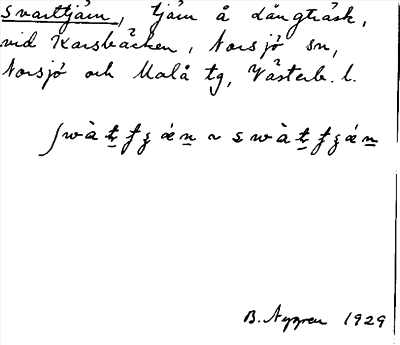 Svarttjärn, tjärn å Långträsk,
vid Karsbäcken, Norsjö sn,
Norsjö och Malå tg, Västerb. l.
B. Nygren 1929